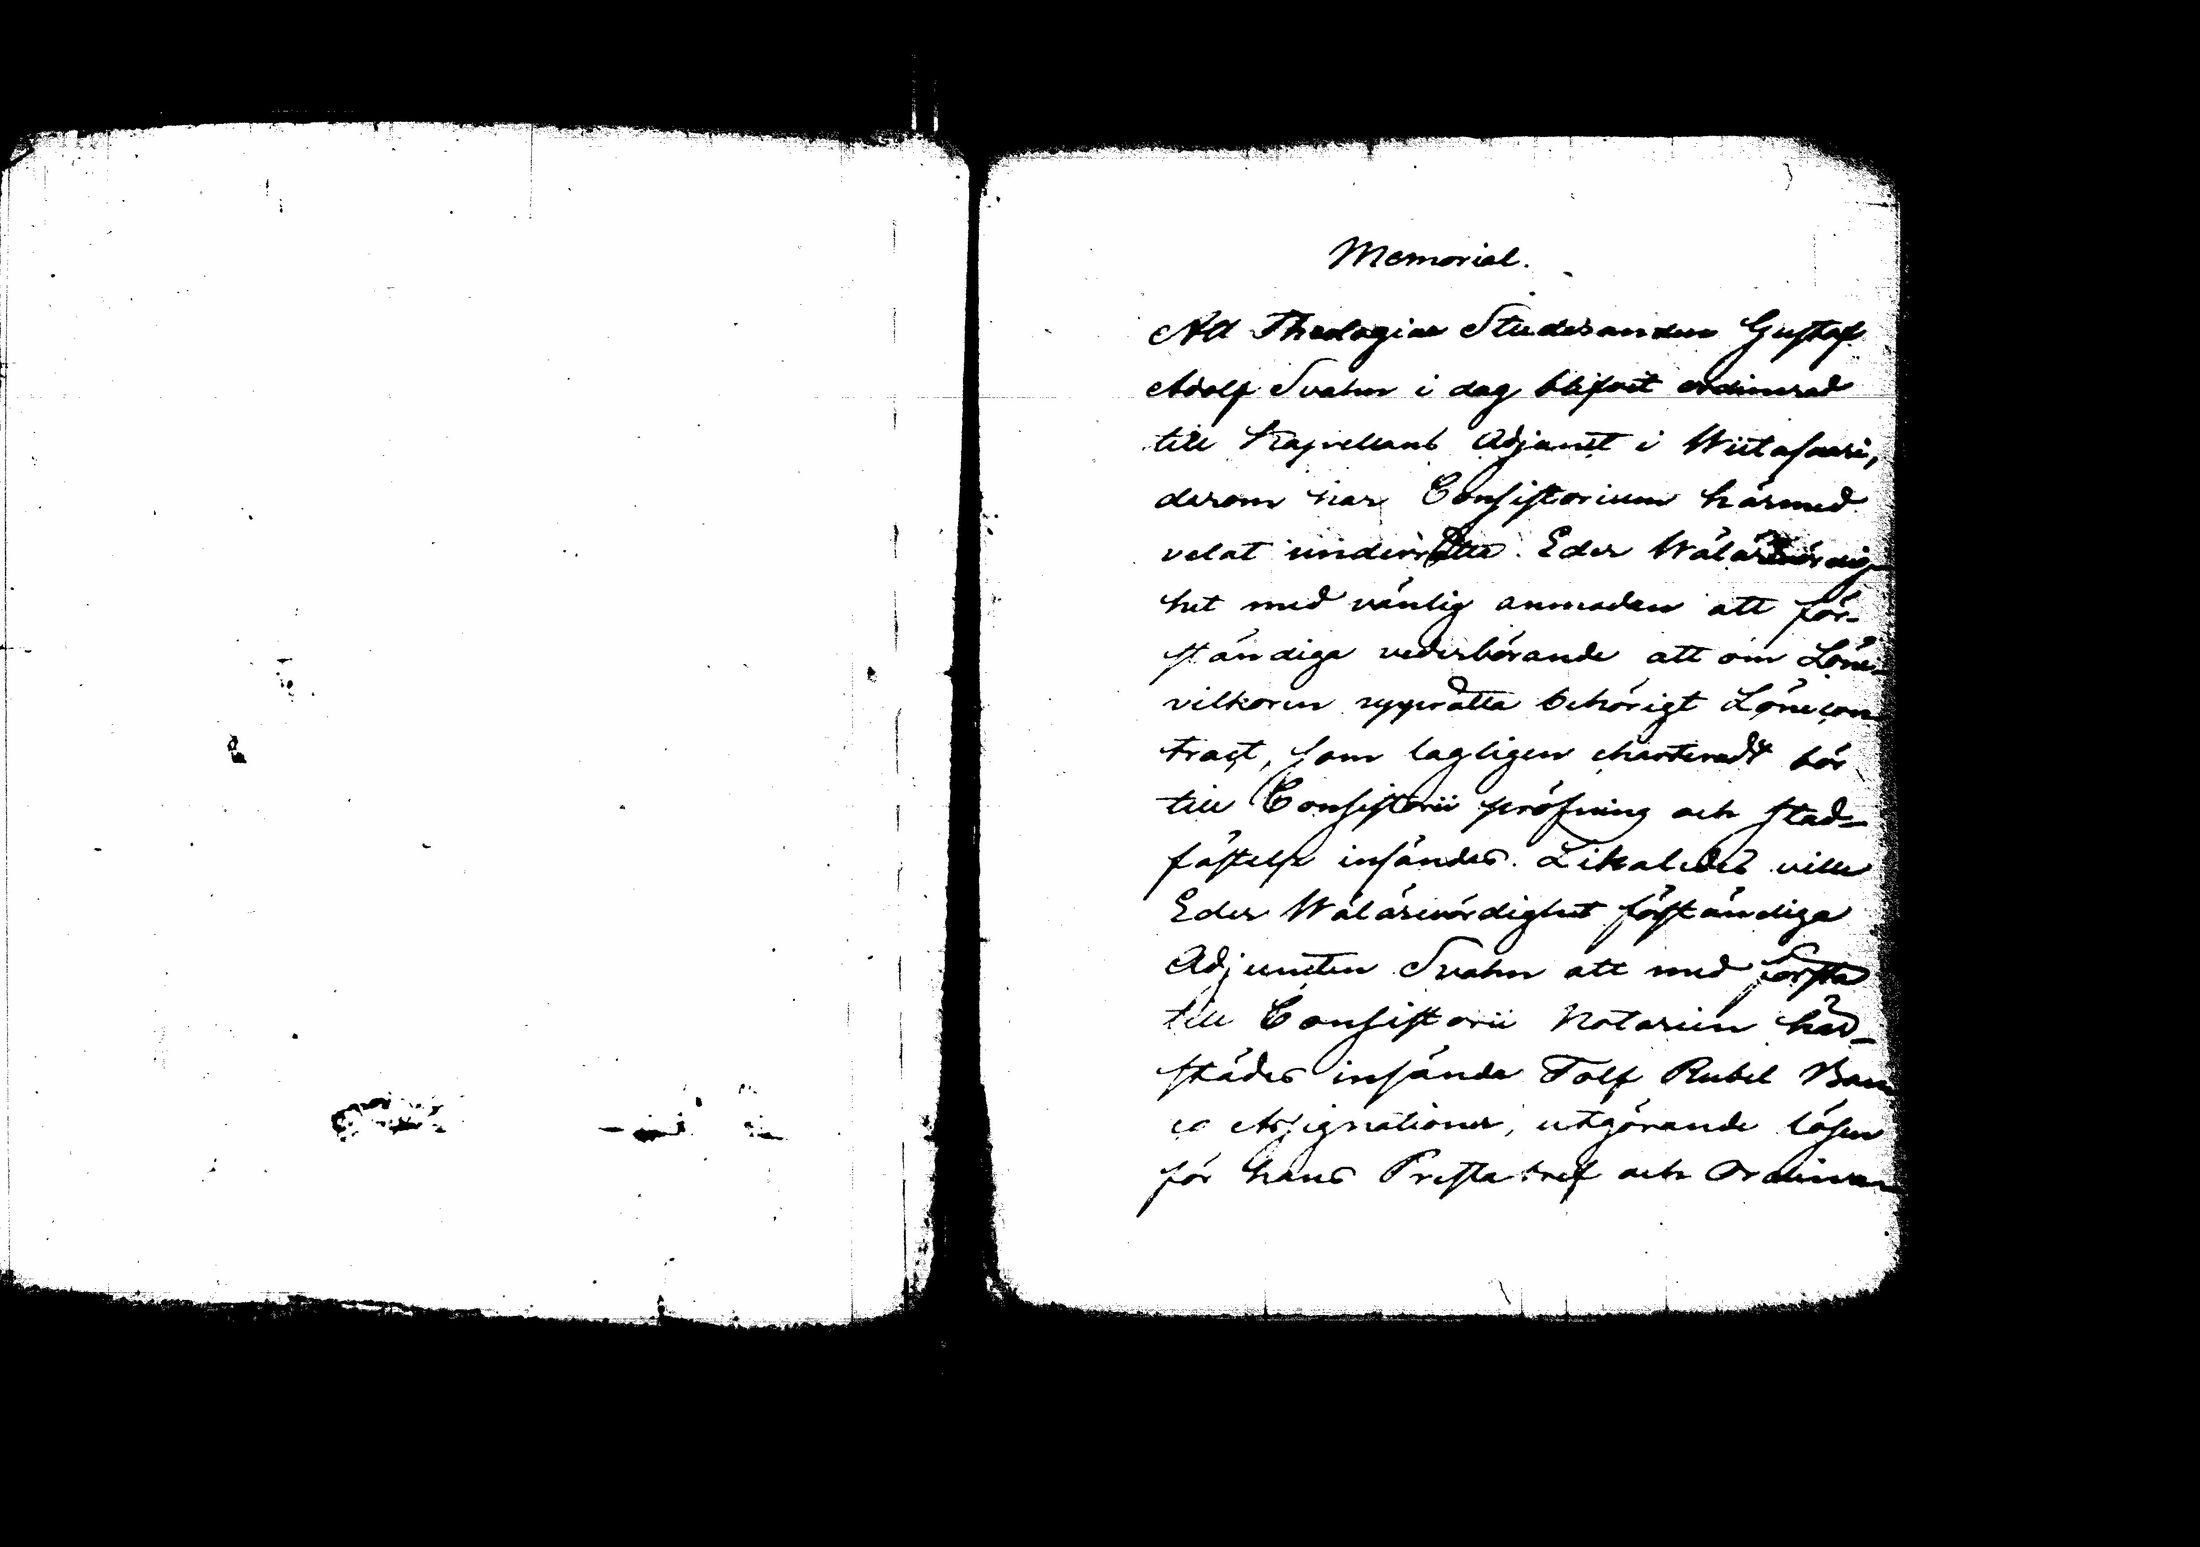 Memorial.
Att Theologiae Studeranden Gustaf
Adolf Svahn i dag blifvit ordinerad
till Kapellans Adjunct i Wiitasaari,
derom har Consistorium härmed
velat underrätta Eder Wälärevördig-
het med vänlig anmodan att för-
ständiga vederbörande att om Löne-
vilkoren upprätta behörigt Lönecon
tract, som lagligen charteradt bör
till Consistorii pröfning och stad-
fästelse insändas. Likaledes ville
Eder Wälärevördighet förständiga
Adjuncten Svahn att med första
till Consistorii Notarien här-
städes insända Tolf Rubel Ban
co Assignationer, utgörande lösen
för hans Prestabref och Ordinan